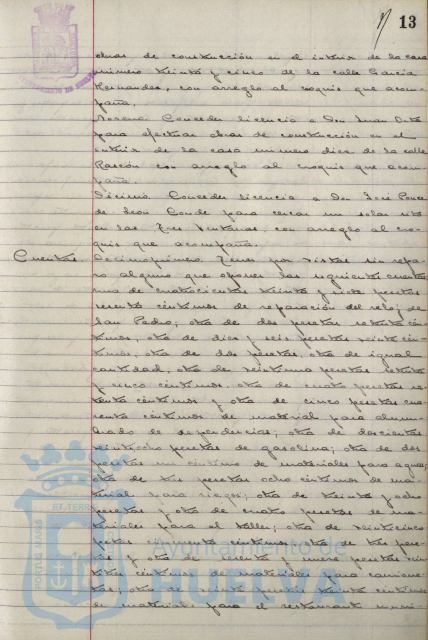 13
obras de construcción en el interior de la casa
número treinta y cinco de la calle García
Hernández, con arreglo al croquis que acom-
paña.
Novena. Conceder licencia a Don Juan
para efectuar obras de construcción en el
interior de la casa número diez de la calle
Rascón con arreglo al croquis que acom-
paña.
Décimo. Conceder licencia a Don José Ponce
de León Conde para cercar un solar sito
en las Tres Ventanas, con arreglo al cro-
quis que acompaña.
Cuentas Decimoprimero. Tener por vistas sin repa-
ro alguno que oponer las siguientes cuentas
una de cuatrocientas treinta y siete pesetas
céntimos de reparación del reloj de
San Pedro; otra de dos pesetas cén-
timos, otra de diez y seis pesetas veinte cén-
timos, otra de dos pesetas, otra de igual
cantidad, otra de veintiuna pesetas
y cinco céntimos, otra de cuatro pesetas
céntimos y otra de cinco pesetas cua-
renta céntimos de material para alum-
brado de dependencias; otra de doscientas
veintiocho pesetas de gasolina; otra de dos
pesetas un céntimo de materiales para aguas;
otra de tres pesetas ocho céntimos de ma-
terial para riegos; otra de treinta y ocho
pesetas y otra de cuatro pesetas de ma-
teriales para el taller; otra de veinticinco
pesetas céntimos otra de tres pese-
tas y otra de y nueve pesetas
céntimos de materiales para camione-
tas; otra de veinte pesetas treinta céntimos
de materiales para el restaurant
Ayuntamiento de
HUELVA